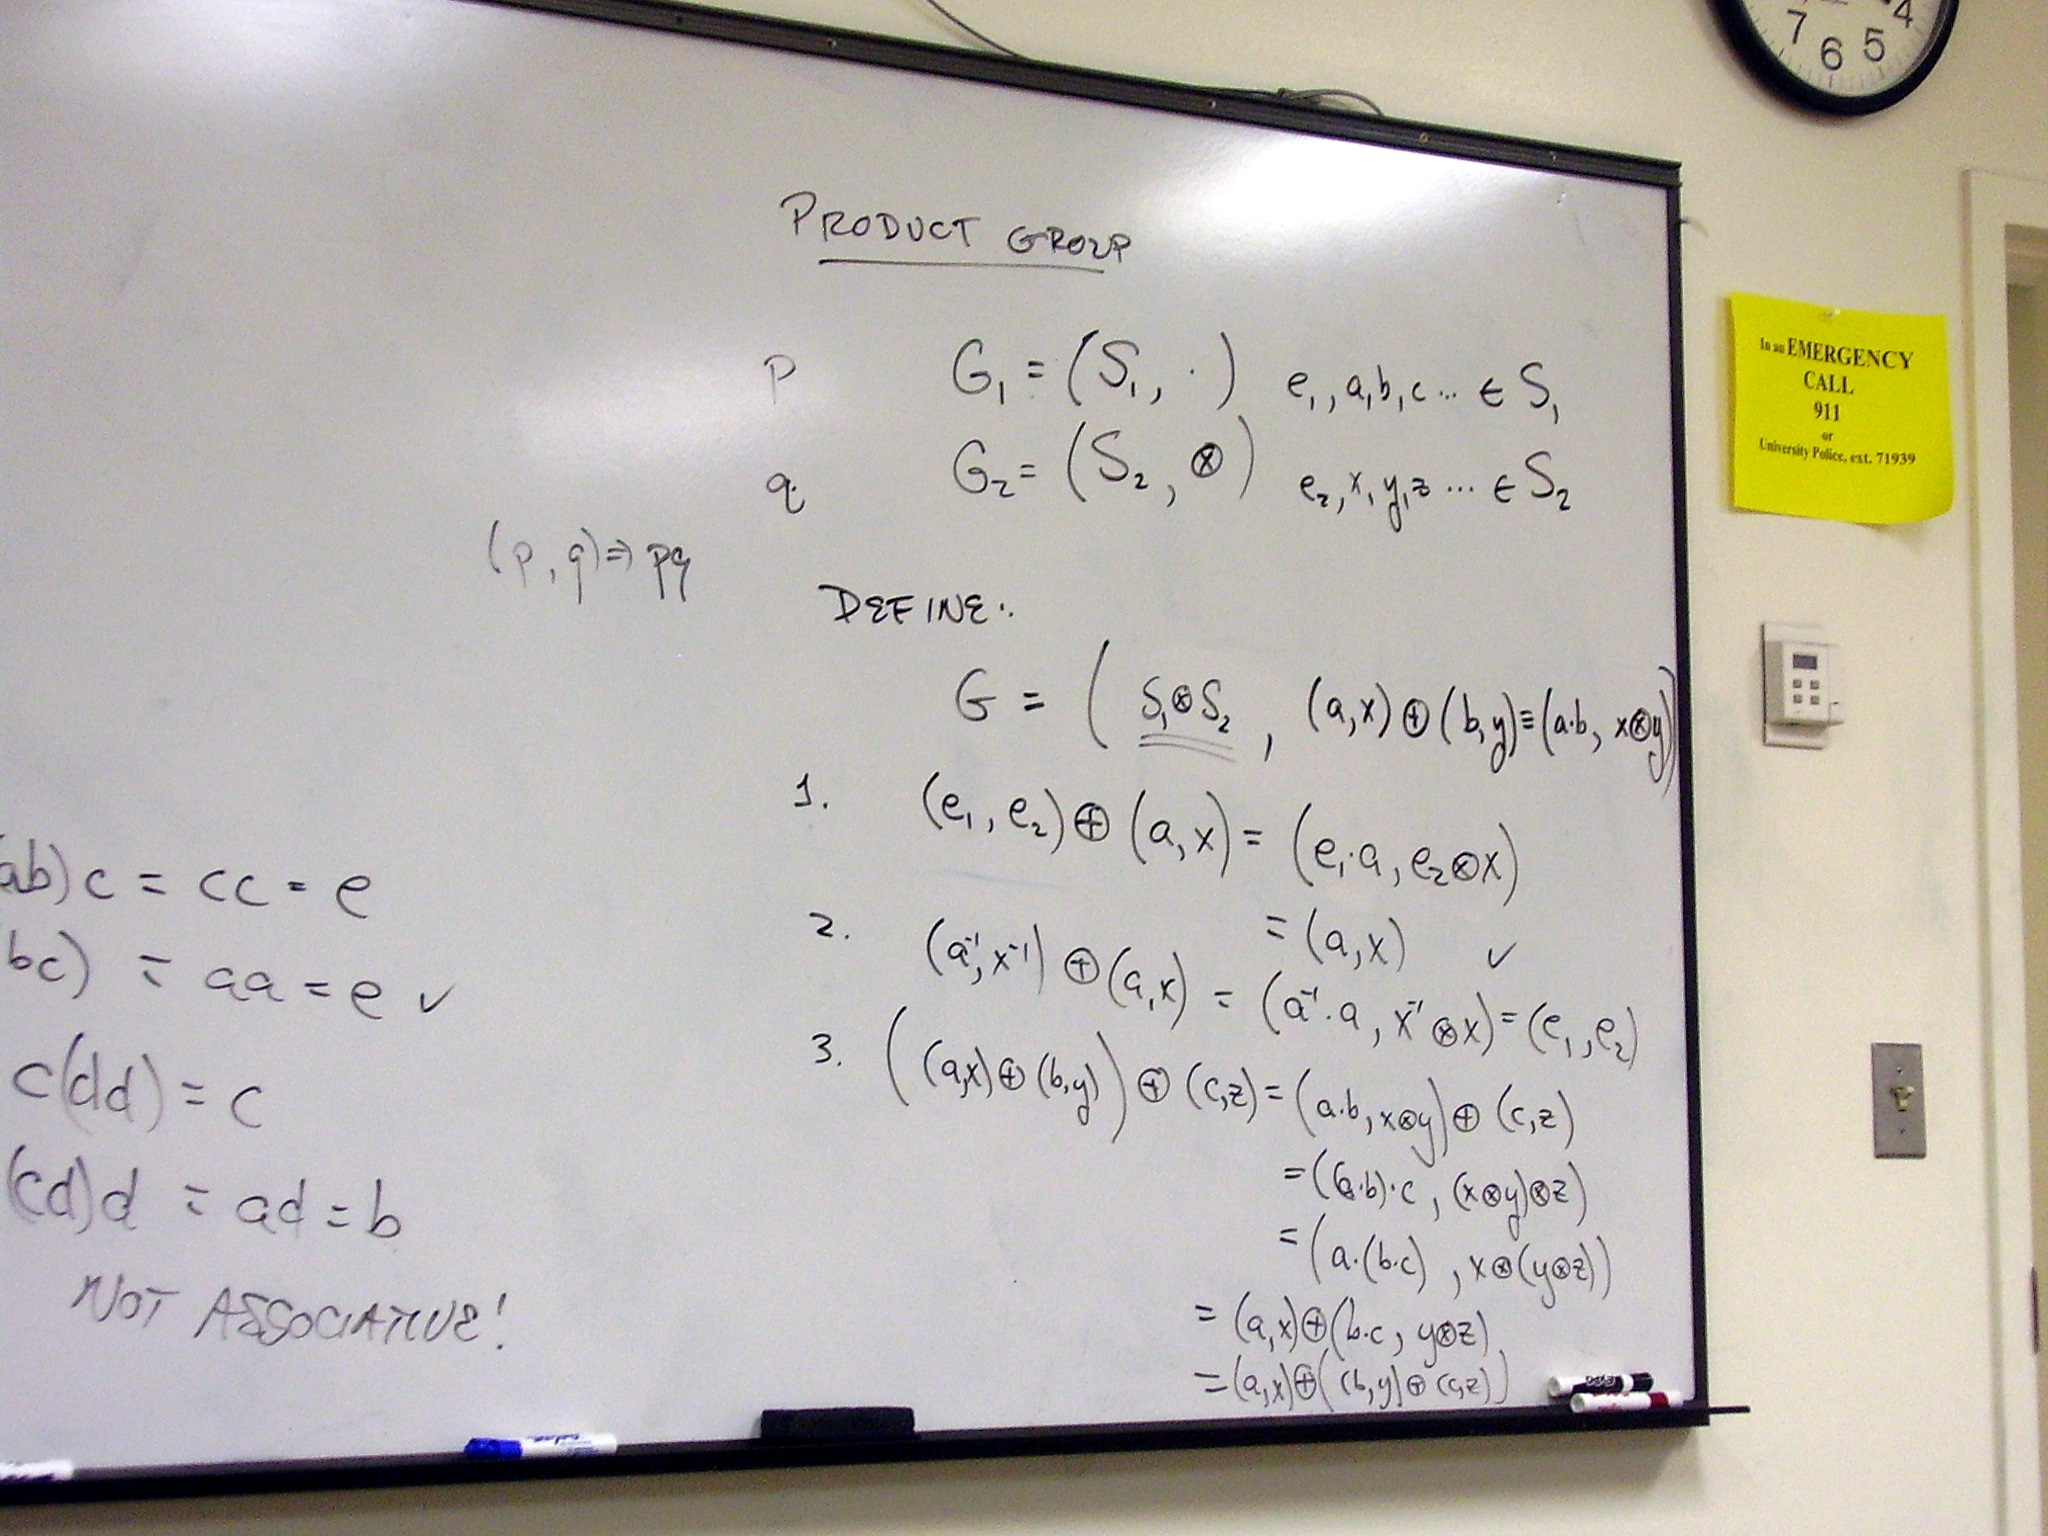 PRODUCT GROUP
P G₁ = (S₁, ·) e₁, a, b, c ... ∈ S₁
q G₂ = (S₂, ⊗) e₂, x, y, z ... ∈ S₂
(p, q) ⇒ pq
DEFINE:
G = ( S₁⊗S₂ , (a,x) ⊕ (b,y) ≡ (a·b, x⊗y)
1. (e₁, e₂) ⊕ (a, x) = (e₁·a, e₂⊗x)
= (a, x) ✓
2. (a⁻¹, x⁻¹) ⊕ (a, x) = (a⁻¹·a, x⁻¹⊗x) = (e₁, e₂)
3. ((a,x) ⊕ (b,y)) ⊕ (c,z) = (a·b, x⊗y) ⊕ (c,z)
= ((a·b)·c, (x⊗y)⊗z)
= (a·(b·c), x⊗(y⊗z))
= (a,x)⊕(b·c, y⊗z)
= (a,x)⊕((b,y)⊕(c,z))
ab)c = cc = e
bc) = aa = e ✓
c(dd) = c
(cd)d = ad = b
NOT ASSOCIATIVE!
7 6 5 4
In an EMERGENCY
CALL
911
or
University Police, ext. 71939